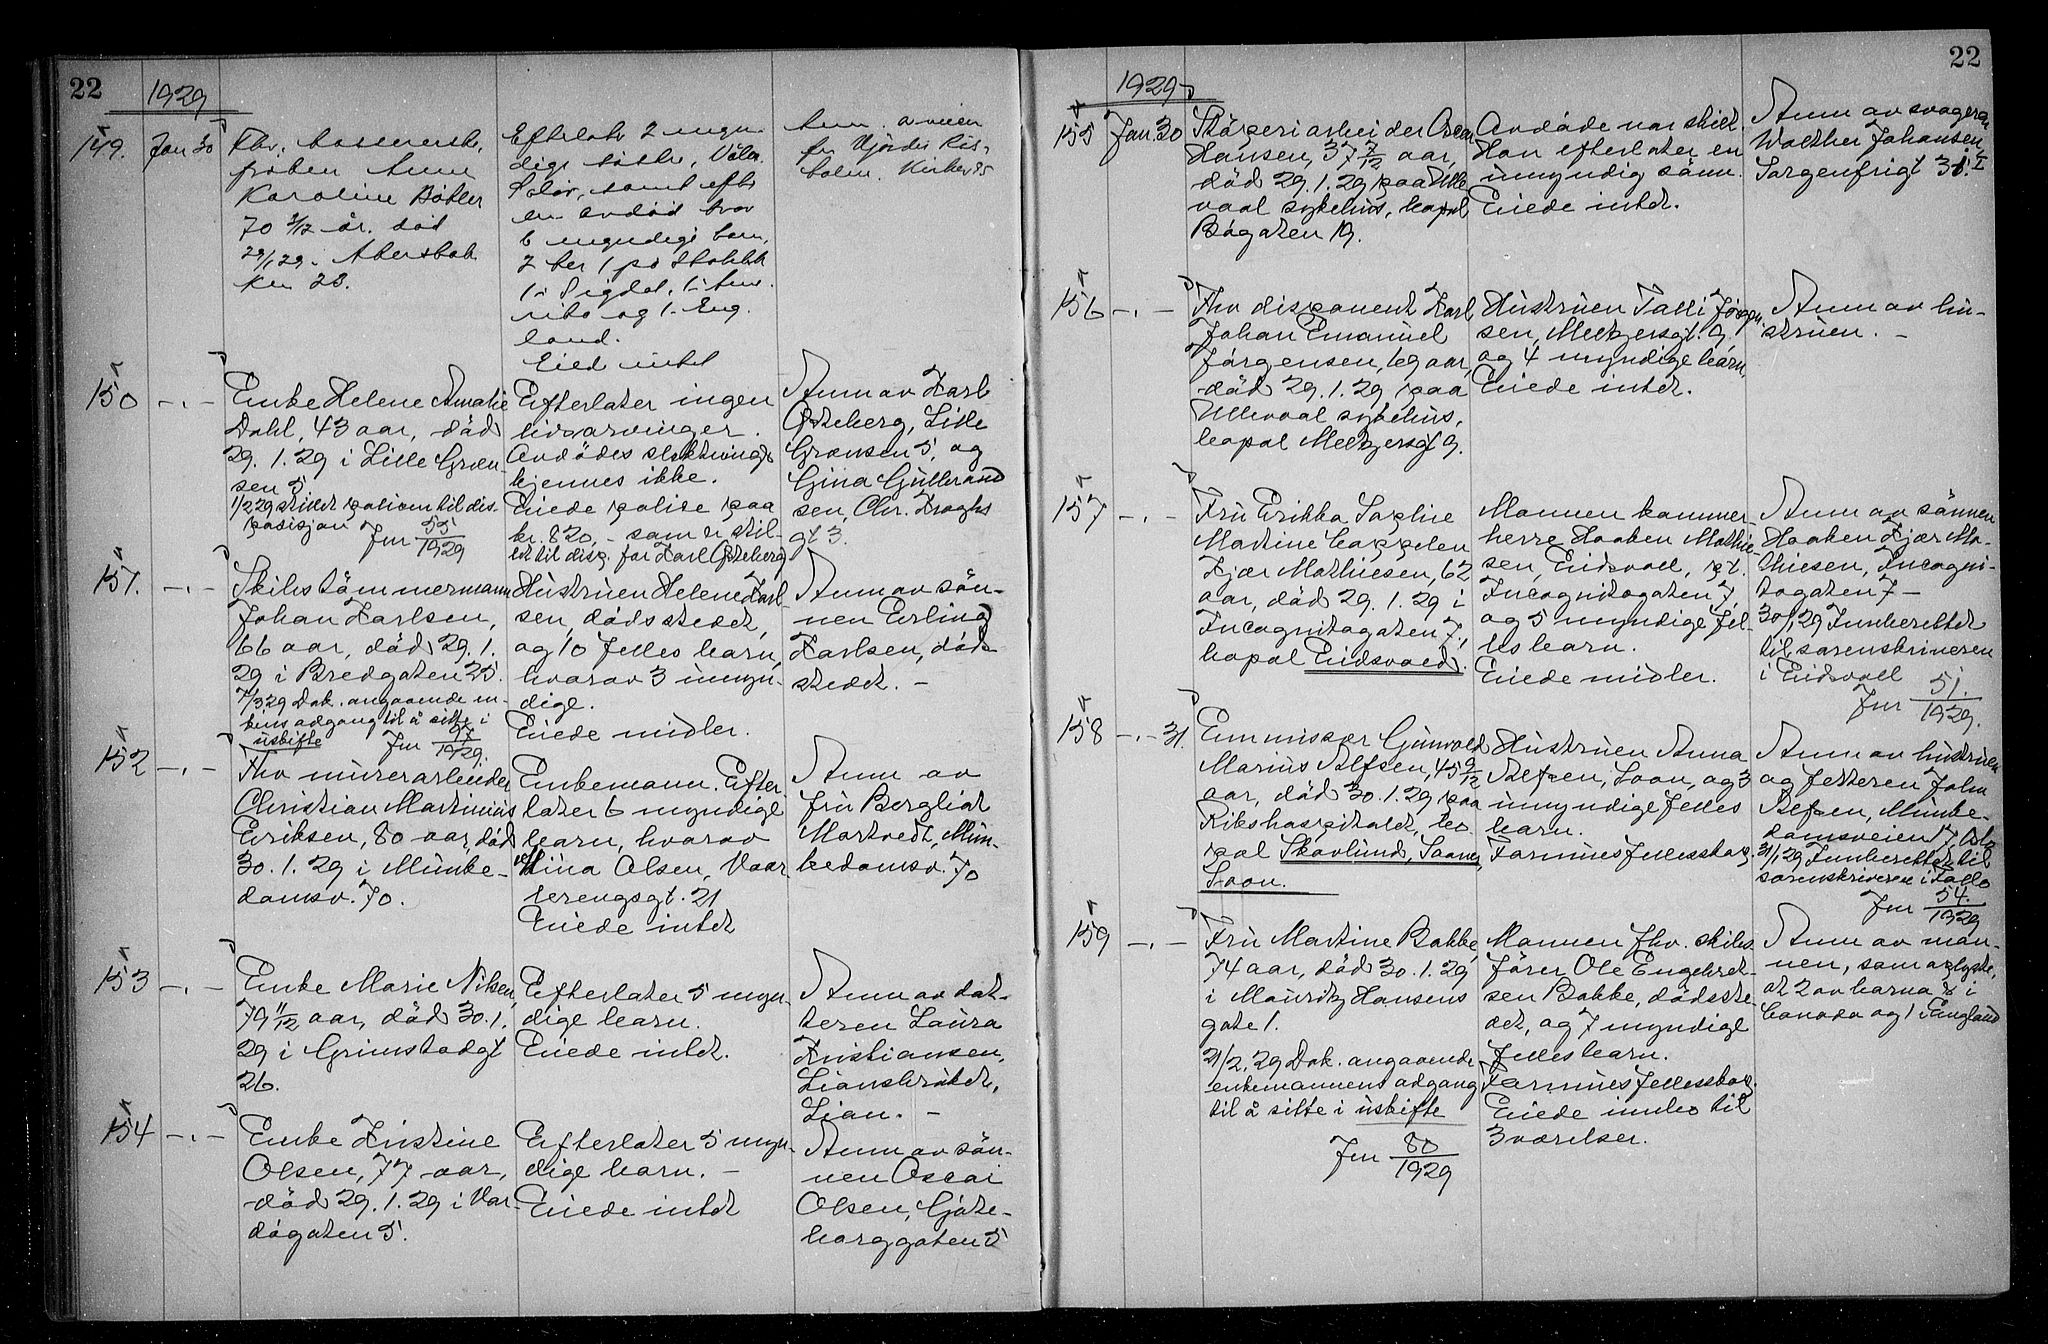 22
1929
149. Jan 30
Karoline
70 3/12 år. död
29/1 29.
28.
Efterlater 2 myn-
dige
6 myndige barn,
1 i Sigdal,
og 1 i Eng-
land.
Eied intet
150 -.-
Enke Helene Amalie
Dahl, 43 aar, död
29.1.29 i Lille Græn-
sen 5
1/2 29 stillet polisen til dis-
posisjon Jnr 55/1929
Efterlater ingen
livsarvinger.
Avdödes slektninger
kjennes ikke.
Eiede polise paa
kr. 820,- som er stil-
let til disp. for Karl Österberg
Anm av Karl
Österberg, Lille
Grænsen 5, og
Gina Gulbrand
sen, Chr. Kroghs
gt 3.
151. -.-
Skibstömmermann
Johan Karlsen,
66 aar, död 29.1.
29 i Bredgaten 25.
7/3 29 Dok. angaaende en-
kens adgang til å sitte i
uskifte Jnr 97/1929.
Hustruen Helene Karl-
sen, dödsstedet,
og 10 felles barn,
hvorav 3 umyn-
dige.
Eiede midler.
Anm av sön-
nen Erling
Karlsen, döds-
stedet. -
152 -.-
Fhv murerarbeider
Christian Martinius
Eriksen, 80 aar, död
30.1.29 i Munke-
damsv. 70.
Enkemann. Efter-
later 6 myndige
barn, hvorav
Olsen, Vaar
lerengsgt. 21
Eiede intet
Anm av
fru Bergliot
Martvedt, Mun-
kedamsv. 70
153 -.-
Enke Marie Nilsen,
79 11/12 aar, död 30.1.
29 i Grimstadgt
26.
Efterlater 5 myn-
dige barn.
Eiede intet.
Anm av dat-
teren Laura
Kristiansen,
Liansbruket,
Lian. -
154 -.-
Enke Kristine
Olsen, 77 aar,
död 29.1.29 i Var-
dögaten 5.
Efterlater 5 myn-
dige barn. -
Eiede intet
Anm av sön-
nen Oscar
Olsen, Göte-
borggaten 5
22
1929
155 Jan 30
Oscar
Hansen, 37 7/12 aar,
död 29.1.29 paa Ulle-
vaal sykehus, bopal
Bögaten 19.
Avdöde var skilt.
Han efterlater en
umyndig sönn.
Eiede intet.
Anm av svogeren
Walther Johansen,
Sorgenfrigt 31.I
156 -.-
Fhv disponent Karl
Johan Emanuel
Jörgensen, 69 aar,
död 29.1.29 paa
Ullevaal sykehus,
bopal Meltzersgt 9.
Hustruen Valli Jörgen-
sen, Meltzersgt. 9,
og 4 myndige barn,
Eiede intet.
Anm av hu-
struen. -
157 -.-
Fru Erikka Sophie
Martine Cappelen
Kjær Mathiesen, 62
aar, död 29.1.29 i
Incognitogaten 7,
bopal Eidsvold.
Mannen kammer-
herre Haaken Mathie-
sen, Eidsvoll, pt.
Incognitogaten 7,
og 5 myndige fel-
les barn.
Eiede midler.
Anm av sönnen
Haaken Kjær Ma-
thiesen, Incogni-
togaten 7 -
30/1 29 Innberettet
til sorenskriveren
i Eidsvoll
Jnr 51./1929.
158 -.- 31.
Emmissær Gunvald
Marius Alfsen, 45 9/12
aar, död 30.1.29 paa
Rikshospitalet, bo-
pal Skovlund, Saaner,
Soon.
Hustruen Anna
Alfsen, Soon, og 3
umyndige felles
barn.
Formuesfellesskap.
Anm av hustruen
og fetteren John
Alfsen, Munke-
damsveien 17, Oslo
31/1 29 Innberettet til
sorenskriveren i Follo
Jnr 54./1929
159 -.-
Fru Martine Bakke,
74 aar, död 30.1.29
i Mauritz Hansens
gate 1.
21/2. 29 Dok. angaaende
enkemannens adgang
til å sitte i uskifte
Jnr 80/1929
Mannen fhv. skibs-
förer Ole Engebret-
sen Bakke, dödsste-
det, og 7 myndige
felles barn.
Formuesfellesskap.
Eiede innbo til
3 værelser.
Anm av man-
nen, som oplyste,
at 2 av barna er i
Canada og 1 i England